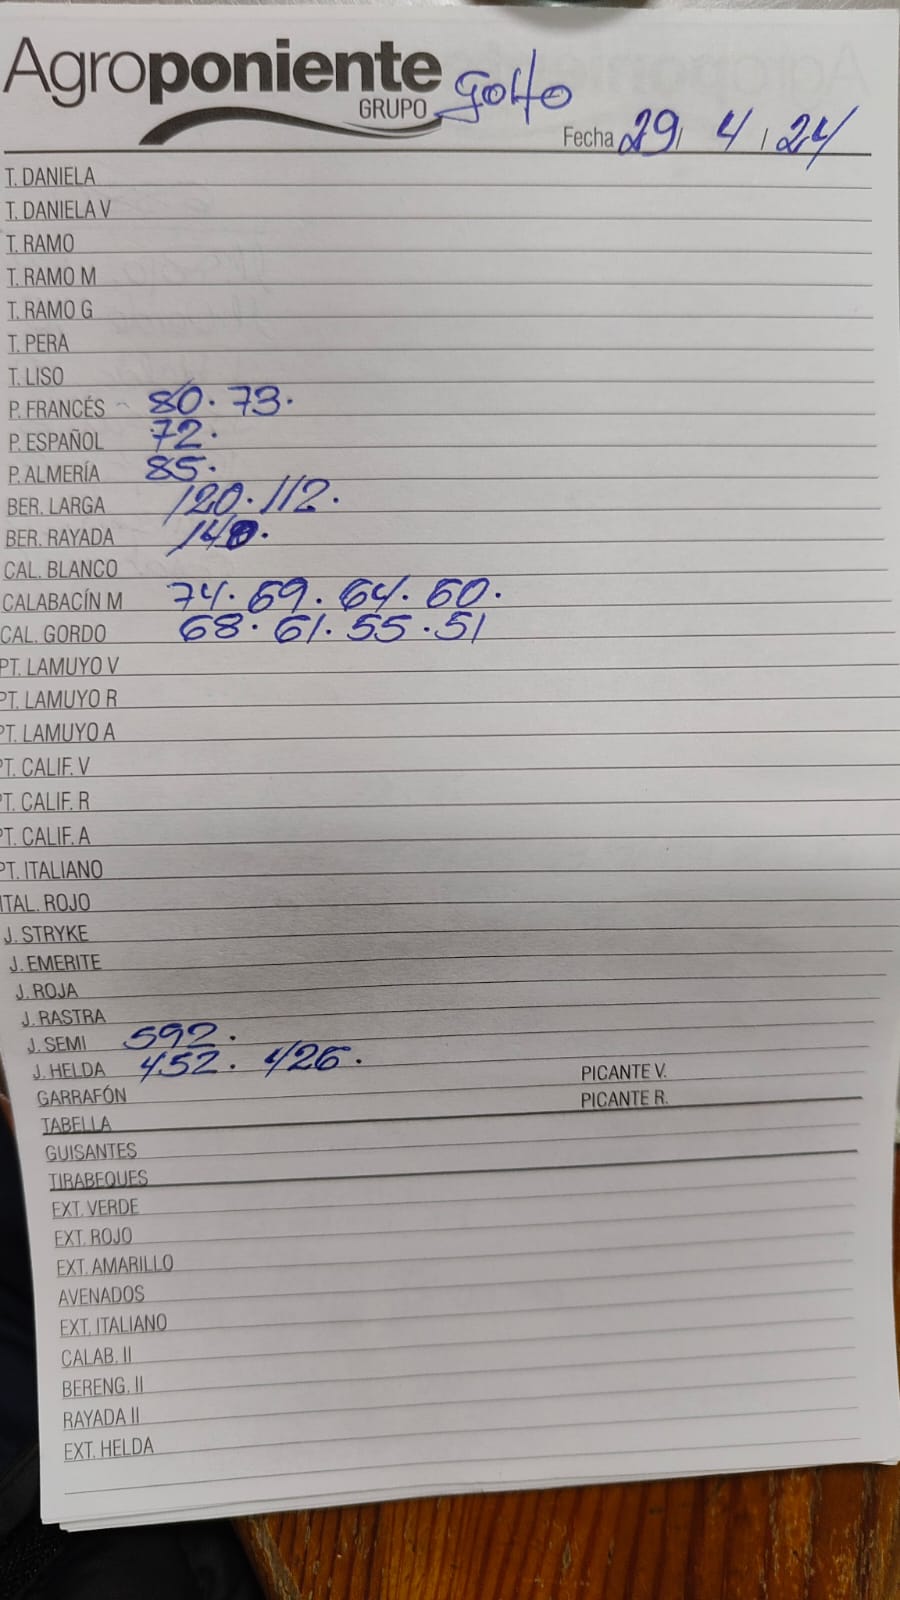 Agroponiente
GRUPO
Golfo
Fecha 29/ 4 / 24
T. DANIELA
T. DANIELA V
T. RAMO
T. RAMO M
T. RAMO G
T. PERA
T. LISO
P. FRANCÉS 80. 73.
P. ESPAÑOL 72.
P. ALMERÍA 85.
BER. LARGA 120. 112.
BER. RAYADA 140.
CAL. BLANCO
CALABACÍN M 74. 69. 64. 60.
CAL. GORDO 68. 61. 55. 51
PT. LAMUYO V
PT. LAMUYO R
PT. LAMUYO A
PT. CALIF. V
PT. CALIF. R
PT. CALIF. A
PT. ITALIANO
ITAL. ROJO
J. STRYKE
J. EMERITE
J. ROJA
J. RASTRA
J. SEMI 592.
J. HELDA 452. 426.
PICANTE V.
GARRAFÓN
PICANTE R.
TABELLA
GUISANTES
TIRABEQUES
EXT. VERDE
EXT. ROJO
EXT. AMARILLO
AVENADOS
EXT. ITALIANO
CALAB. II
BERENG. II
RAYADA II
EXT. HELDA